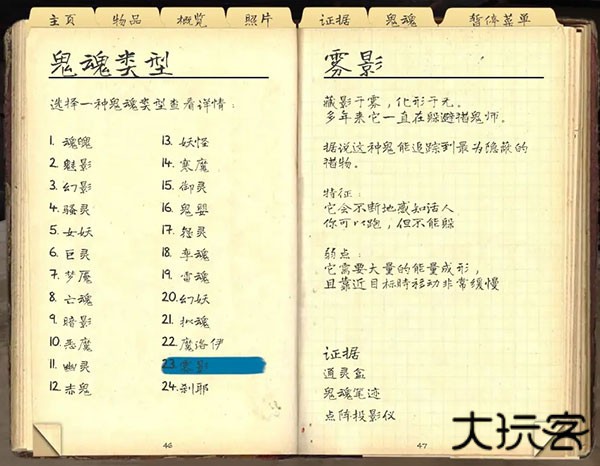 主页 物品 概览 照片 证据 鬼魂 暂停菜单
鬼魂类型
选择一种鬼魂类型查看详情:
1. 魂魄
2. 魅影
3. 幻影
4. 骚灵
5. 女妖
6. 巨灵
7. 梦魇
8. 亡魂
9. 暗影
10. 恶魔
11. 幽灵
12. 赤鬼
13. 妖怪
14. 寒魔
15. 御灵
16. 鬼婴
17. 怨灵
18. 孪魂
19. 雷魂
20. 幻妖
21. 拟魂
22. 魔洛伊
23. 雾影
24. 刹耶
46
雾影
藏影于雾,化形于无。
多年来它一直在躲避猎鬼师。
据说这种鬼能追踪到最为隐蔽的
猎物。
特征:
它会不断地感知活人
你可以跑,但不能躲
弱点:
它需要大量的能量成形,
且靠近目标时移动非常缓慢
证据
通灵盒
鬼魂笔迹
点阵投影仪
47
大玩客